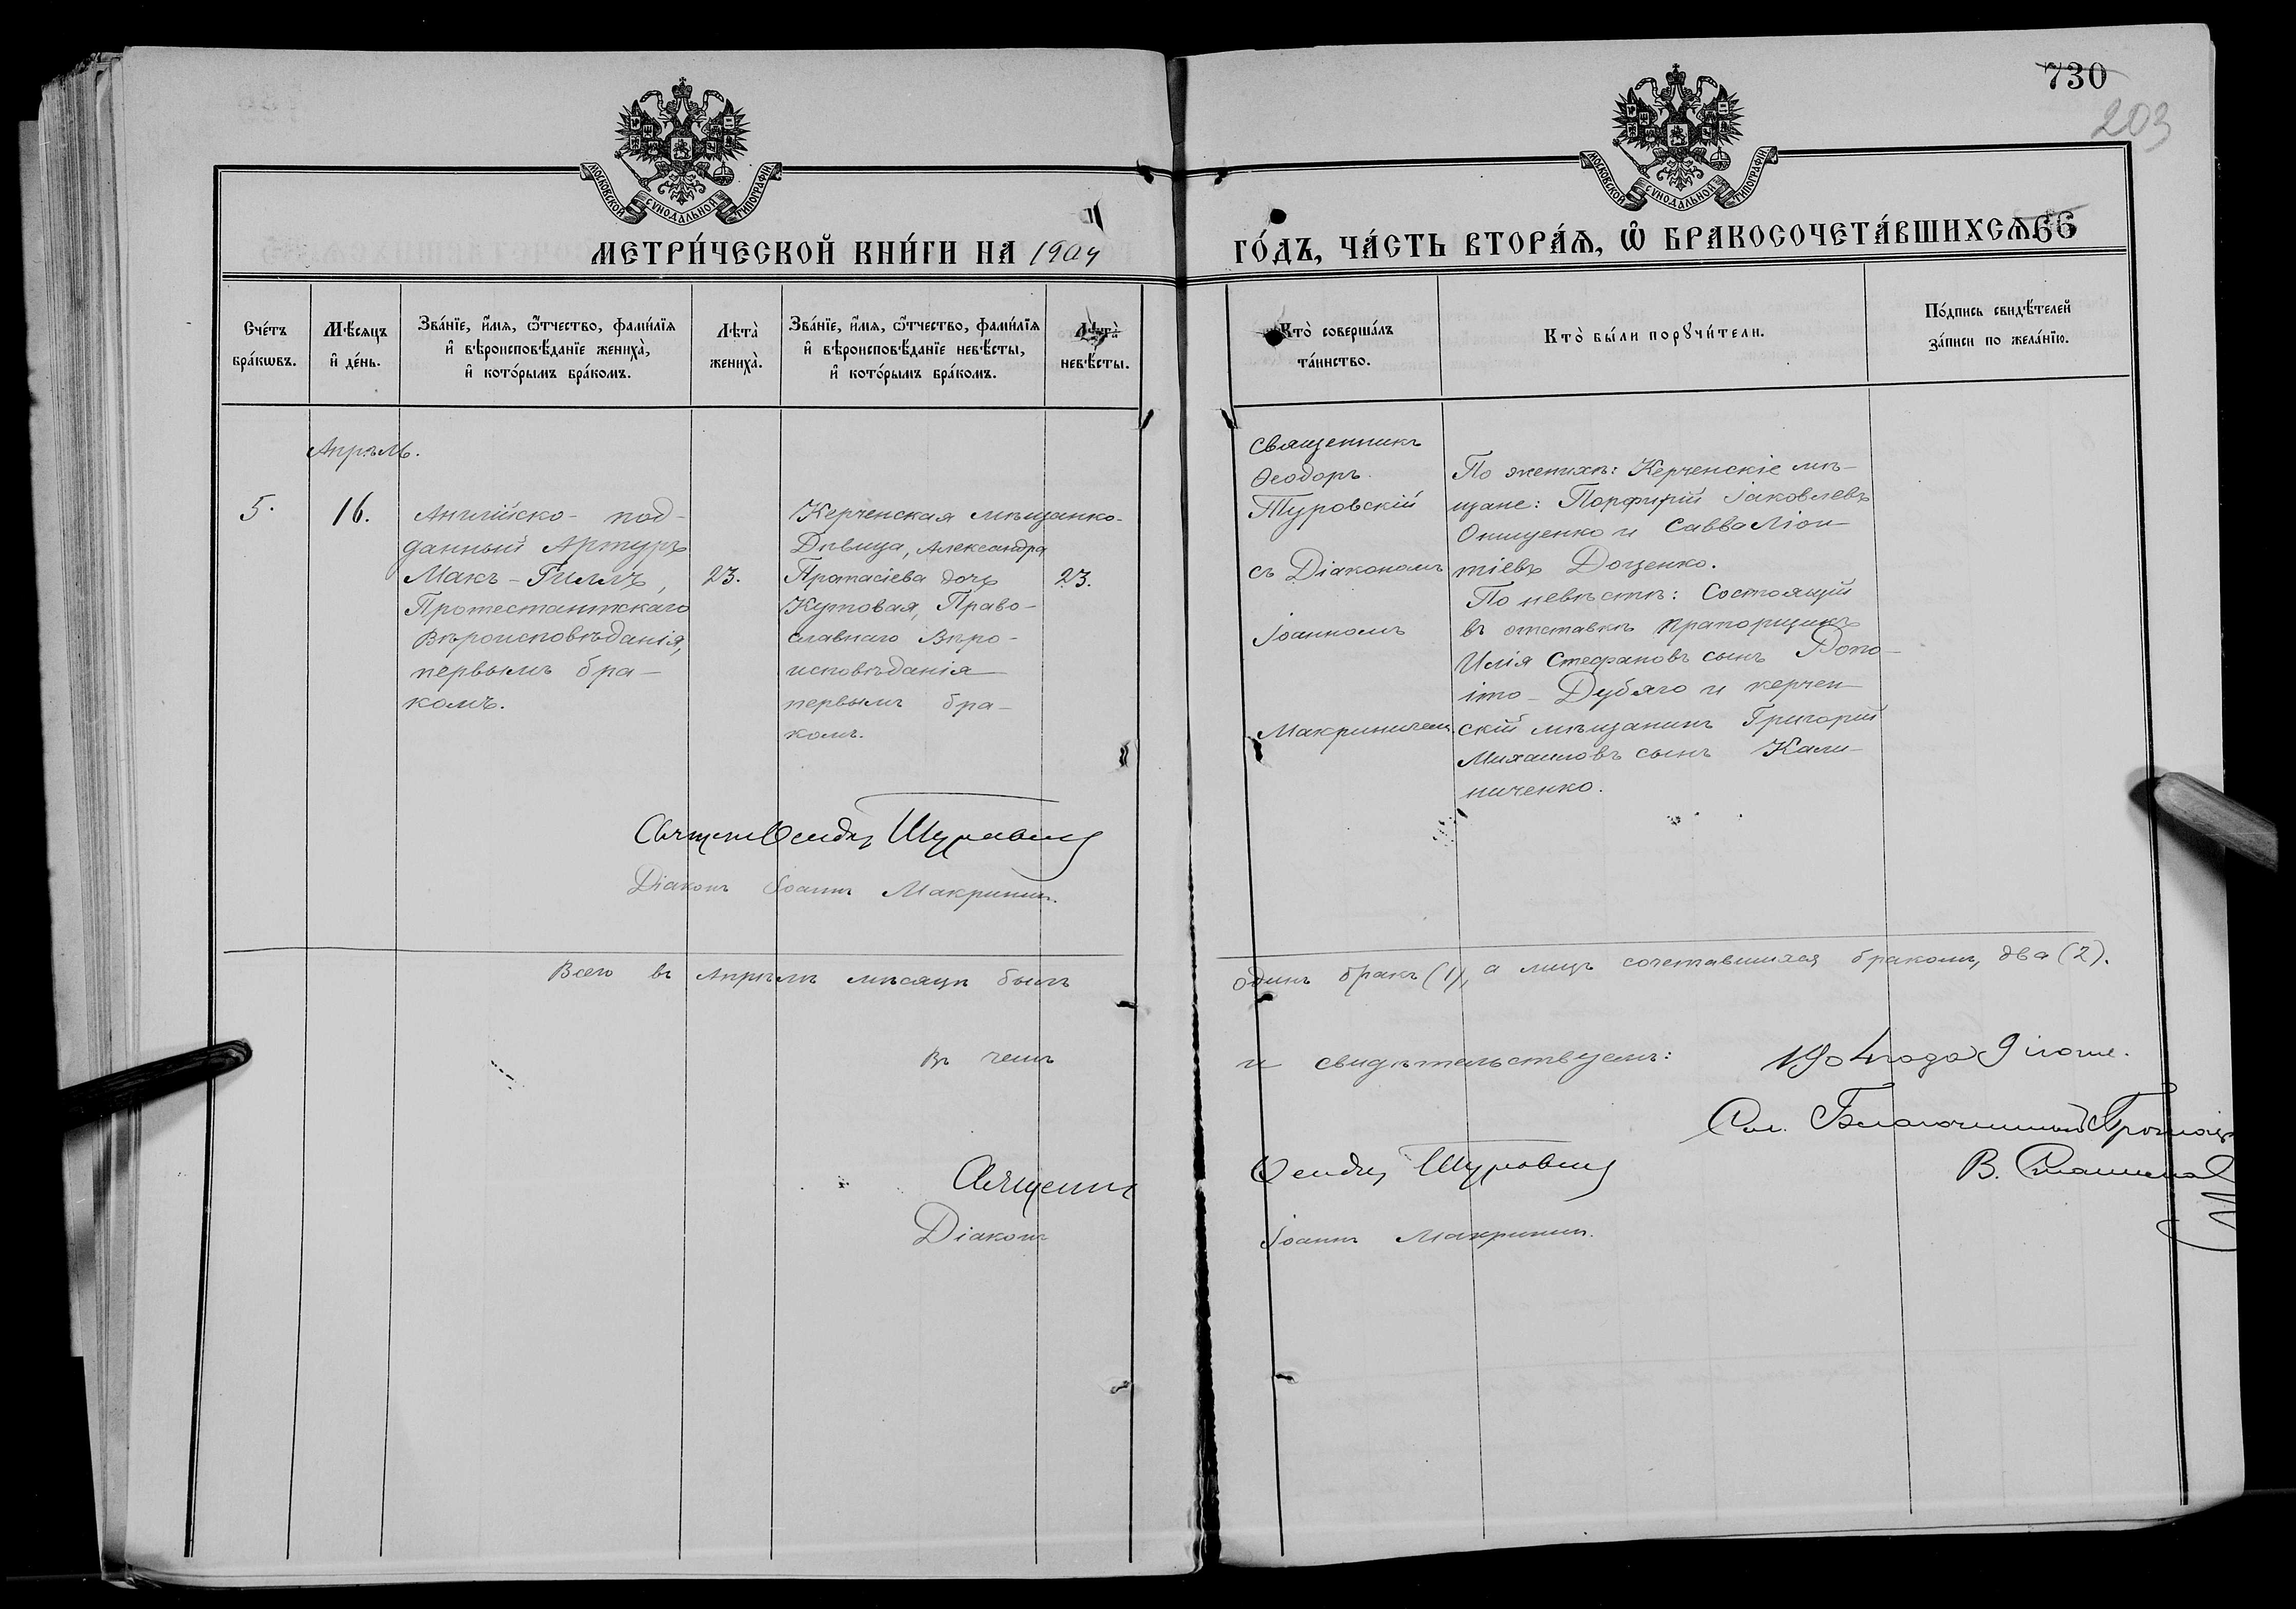 730
203
МОСКОВСКОЙ СѴНОДАЛЬНОЙ ТИПОГРАФІИ.
МОСКОВСКОЙ СѴНОДАЛЬНОЙ ТИПОГРАФІИ.
МЕТРИ́ЧЕСКОЙ КНИ́ГИ НА 1904
ГО́ДЪ, ЧА́СТЬ ВТОРА́Ѧ, Ѡ҆ БРАКОСОЧЕТА́ВШИХСѦ 66
Сче́тъ бра́кѡвъ.
Мѣ́сяцъ и҆ де́нь.
Зва́нїе, и҆́мѧ, ѻ҆́тчество, фами́лїѧ и҆ вѣроисповѣ́данїе жениха̀, и҆ кото́рымъ бра́комъ.
Лѣта̀ жениха̀.
Зва́нїе, и҆́мѧ, ѻ҆́тчество, фами́лїѧ и҆ вѣроисповѣ́данїе невѣ́сты, и҆ кото́рымъ бра́комъ.
Лѣта̀ невѣ́сты.
Кто̀ соверша́лъ та́инство.
Кто̀ бы́ли порꙋчи́тели.
По́дпись свидѣ́телей за́писи по жела́нїю.
Апрѣль.
5.
16.
Англійско-под-
данный Артуръ
Макъ-Гиллъ,
Протестантскаго
Вѣроисповѣданія,
первымъ бра-
комъ.
23.
Керченская мѣщанко-
Дѣвица, Александра
Протасіева дочь
Кутовая, Право-
славнаго Вѣро-
исповѣданія
первымъ бра-
комъ.
23.
Священникъ
Ѳеодоръ
Туровскій
съ Діакономъ
Іоанномъ
Макриничем.
По женихѣ: Керченскіе мѣ-
щане: Порфирій Іаковлевъ
Онищенко и Савва Ліон-
тіевъ Доценко.
По невѣстѣ: Состоящій
въ отставкѣ прапорщикъ
Илія Стефановъ сынъ
Дубяго и керчен-
скій мѣщанинъ Григорій
Михаиловъ сынъ Кали-
ниченко.
Діаконъ Іоаннъ
Всего въ Апрѣлѣ мѣсяцѣ былъ
одинъ бракъ (1), а лицъ сочетавшихся бракомъ, два (2).
Въ чемъ
и свидѣтельствуемъ:
1904 года 9 іюня.
Діаконъ
Іоаннъ